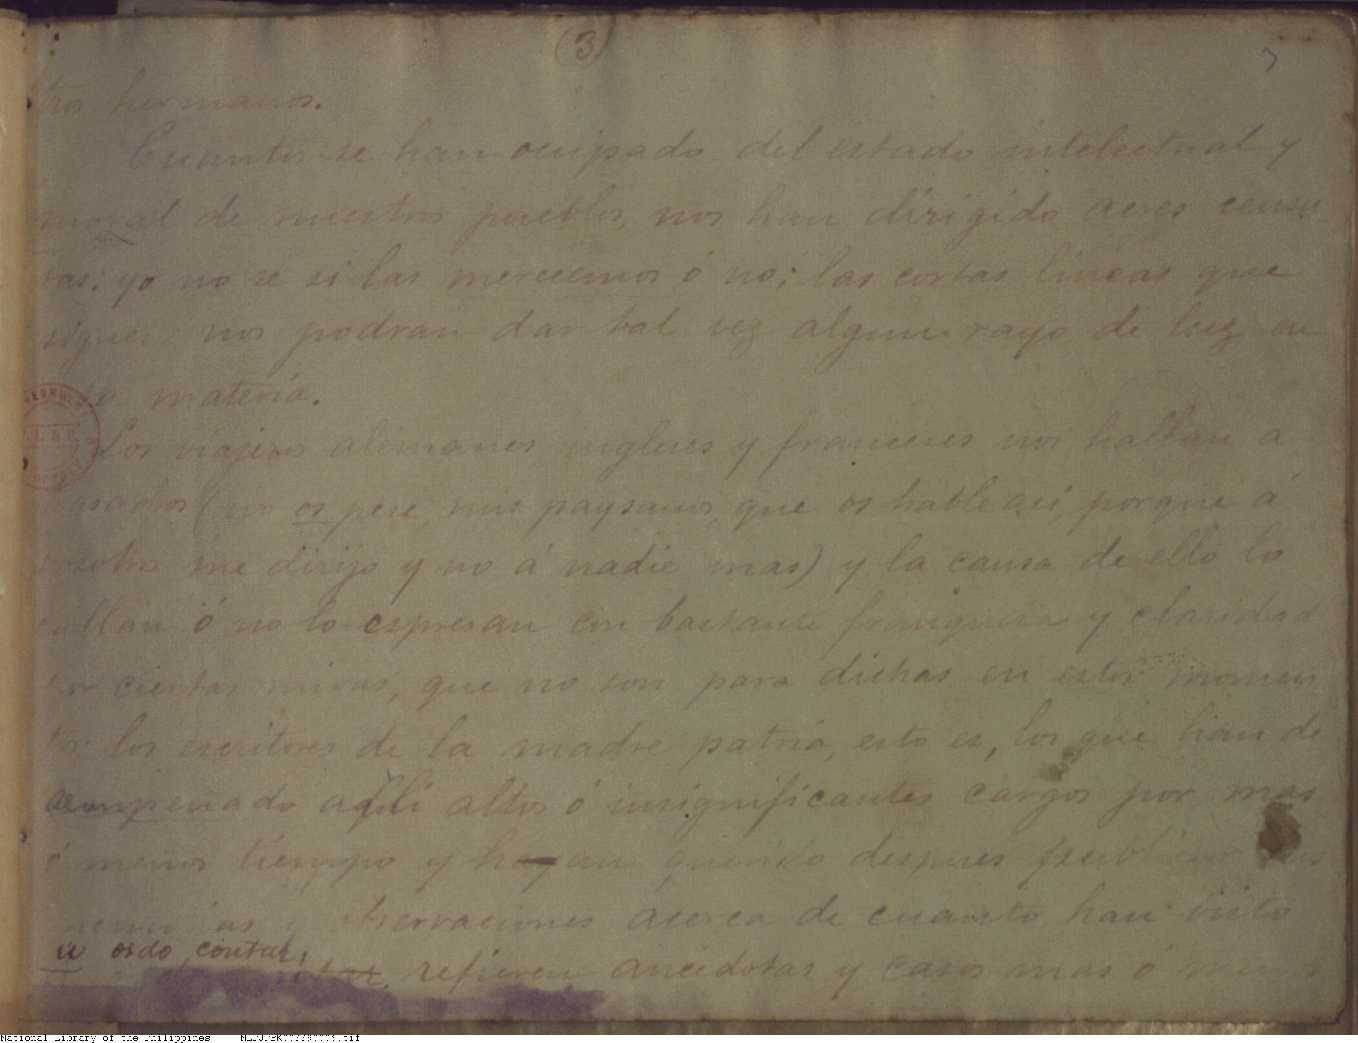 (3)
tros hermanos.
Cuantos se han ocupado del estado intelectual y
moral de nuestros pueblos, nos han dirigido acres censu
ras; yo no se si las merecemos ó no; las cortas lineas que
siguen nos podran dar tal vez algun rayo de luz en
materia.
Los viajeros alemanes ingleses y franceses nos hallan a
trasados (no os pese, mis paysanos, que os hable asi, porque á
vosotros me dirijo y no á nadie mas) y la causa de ello lo
callan ó no lo espresan con bastante franqueza y claridad
por ciertas miras, que no son para dichas en estos momen
tos: los escritores de la madre patria, esto es, los que han de
sempeñado alli altos ó insignificantes cargos por mas
ó menos tiempo y han querido despues publicar sus
memorias y observaciones acerca de cuanto han visto
u oido contar,
refieren anecdotas y casos mas ó menos
National Library of the Philippines